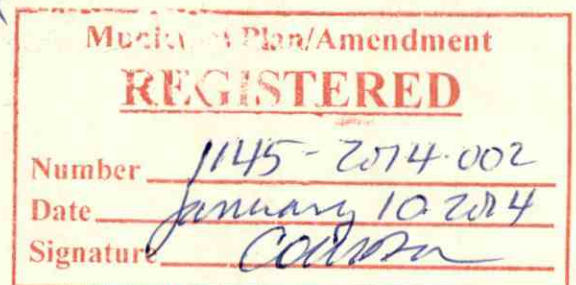 Plan/Amendment
REGISTERED
Number 1145-2014-002
Date January 10 2014
Signature